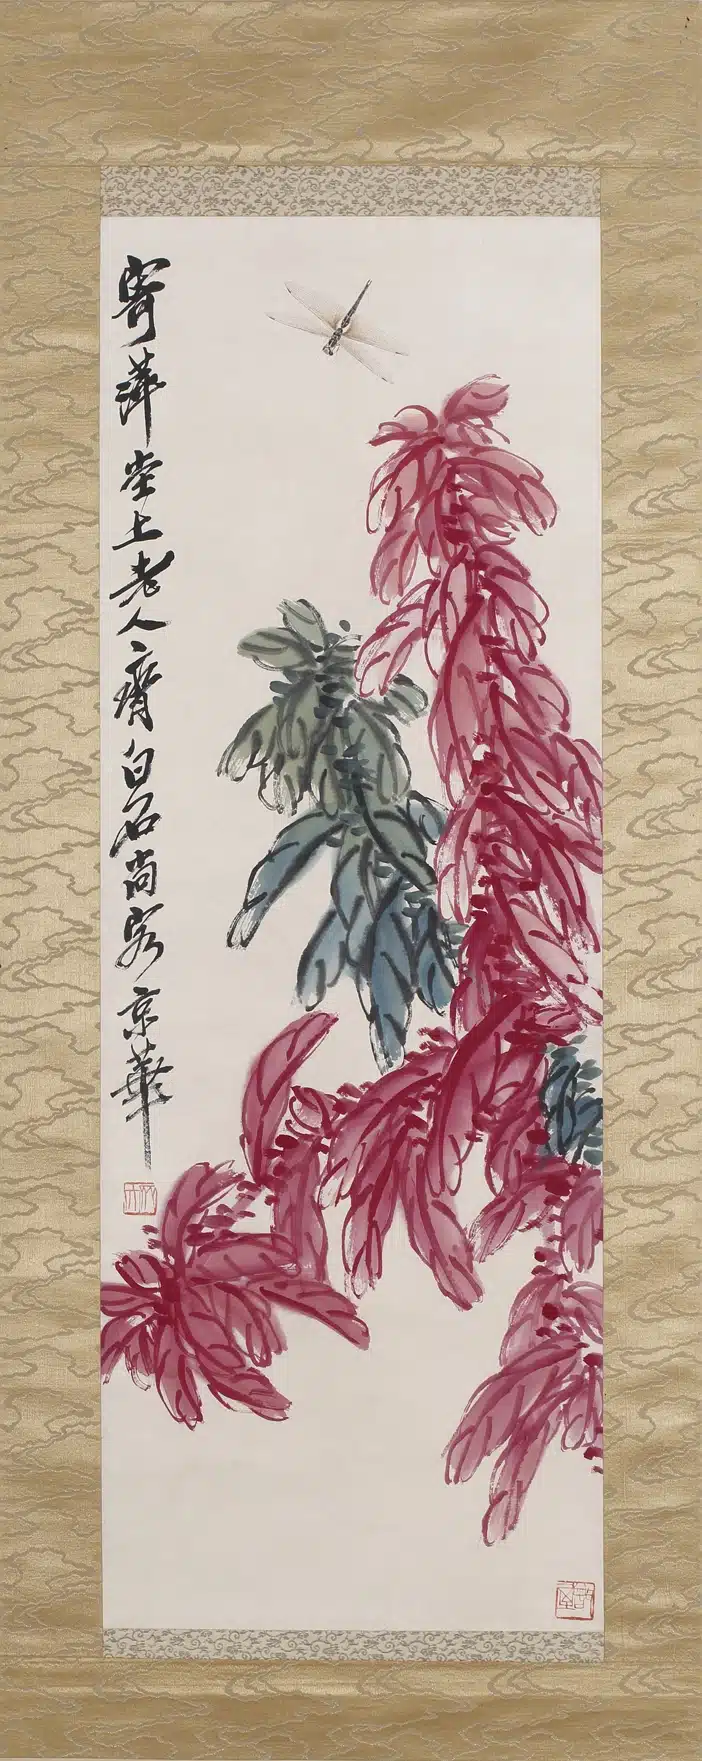 寄萍堂上老人齊白石尚客京華